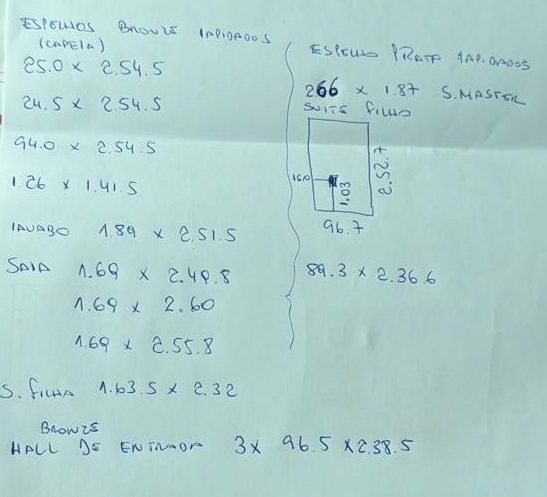 ESPELHOS BRONZE LAPIDADOS
(CAPELA)
25.0 x 2.54.5
24.5 x 2.54.5
94.0 x 2.54.5
1.26 x 1.41.5
LAVABO 1.89 x 2.51.5
SALA 1.69 x 2.49.8
1.69 x 2.60
1.69 x 2.55.8
S. FILHA 1.63.5 x 2.32
BRONZE
HALL DE ENTRADA 3x 96.5 x 238.5
ESPELHO PRATA LAPIDADOS
266 x 1.87 S. MASTER
SUITE FILHO
1.03
2.52.7
96.7
89.3 x 2.36.6